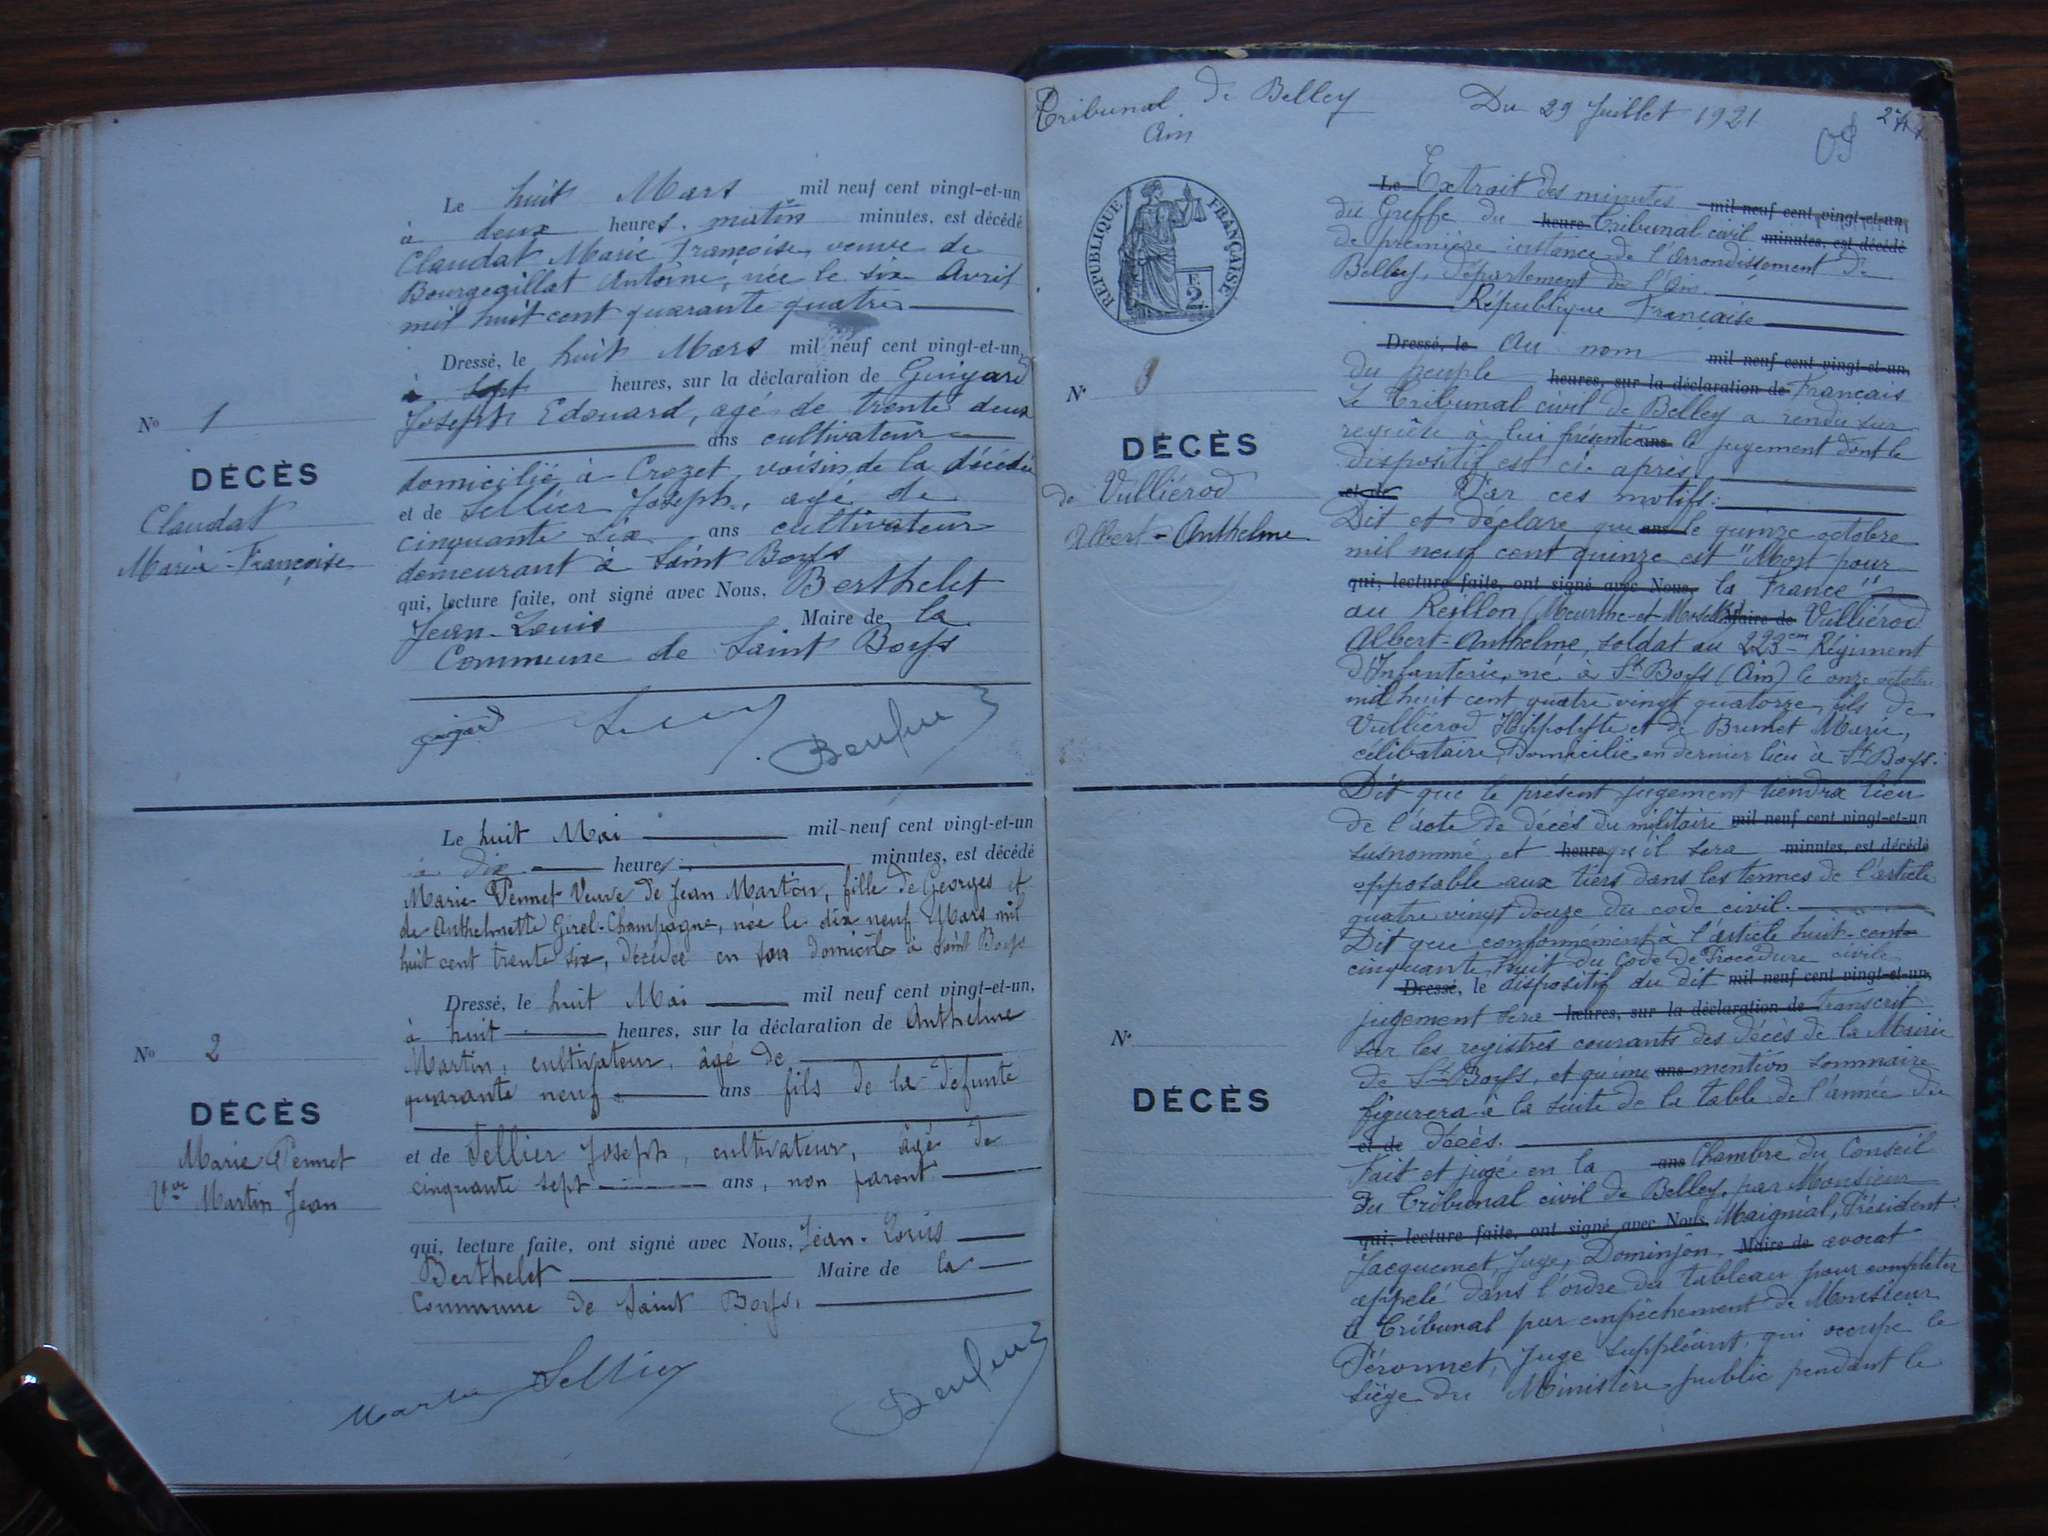 Le huit Mars mil neuf cent vingt-et-un
à deux heures matin minutes, est décédé
Claudat Marie Françoise, veuve de
Bourgeaillat Antoine, née le six Avril
mil huit cent quarante quatre
Dressé, le huit Mars mil neuf cent vingt-et-un,
à sept heures, sur la déclaration de Guigard
Joseph Edouard, agé de trente deux
ans cultivateur
domicilié à Crozet, voisin de la décédée
et de Sellier Joseph, agé de
cinquante six ans cultivateur
demeurant à Saint Boys
qui, lecture faite, ont signé avec Nous, Berthelet
Jean-Louis Maire de la
Commune de Saint Boys
No 1
DÉCÈS
Claudat
Marie-Françoise
Le huit Mai mil neuf cent vingt-et-un
à dix heures minutes, est décédé
Marie Pennet Veuve de Jean Martin, fille de Georges et
de Anthelmette Girel-Champagne, née le dix neuf Mars mil
huit cent trente six, décédée en son domicile à Saint Boys
Dressé, le huit Mai mil neuf cent vingt-et-un,
à huit heures, sur la déclaration de Anthelme
Martin, cultivateur, âgé de
quarante neuf ans fils de la défunte
et de Sellier Joseph, cultivateur, âgé de
cinquante sept ans, non parent
qui, lecture faite, ont signé avec Nous, Jean-Louis
Berthelet Maire de la
Commune de Saint Boys.
No 2
DÉCÈS
Marie Pennet
Vve Martin Jean
Martin Sellier
Tribunal de Belley
Ain
Du 29 Juillet 1921
RÉPUBLIQUE FRANÇAISE
F.
2
No
DÉCÈS
de Vulliérod
Albert-Anthelme
Le Extrait des minutes mil neuf cent vingt-et-un,
du Greffe du heure Tribunal civil minutes, est décédé
de première instance de l'arrondissement de
Belley, département de l'Ain.
République Française
Dressé, le Au nom mil neuf cent vingt-et-un,
du peuple heures, sur la déclaration de Français
Le Tribunal civil de Belley a rendu sur
requête à lui présentée ans le jugement dont le
dispositif est ci-après.
et de Par ces motifs:
Dit et déclare que ans le quinze octobre
mil neuf cent quinze est "Mort pour
qui, lecture faite, ont signé avec Nous, la France"
au Reillon (Meurthe-et-Moselle) Maire de Vulliérod
Albert-Anthelme, soldat au 223em Régiment
d'Infanterie, né à St Boys (Ain) le onze octobre
mil huit cent quatre vingt quatorze, fils de
Vulliérod Hippolyte et de Brunet Marie,
célibataire, Domicilié en dernier lieu à St Boys.
Dit que le présent jugement tiendra lieu
de l'acte de décès du militaire mil neuf cent vingt-et-un
susnommé, et heure qu'il sera minutes, est décédé
opposable aux tiers dans les termes de l'article
quatre vingt douze du code civil.
Dit que conformément à l'article huit-cent
cinquante huit du Code de Procédure civile
Dressé, le dispositif du dit mil neuf cent vingt-et-un,
jugement sera heures, sur la déclaration de transcrit
sur les registres courants des décès de la Mairie
de St Boys, et qu'une ans mention sommaire
figurera à la suite de la table de l'année du
et de décès.
Fait et jugé en la ans Chambre du Conseil
du Tribunal civil de Belley, par Monsieur
qui, lecture faite, ont signé avec Nous, Maignial, Président
Jacquemet, Juge, Dominjon, Maire de avocat
appelé dans l'ordre du tableau pour compléter
le Tribunal par empêchement de Monsieur
Péronnet, Juge suppléant, qui occupe le
siège du Ministère public pendant le
No
DÉCÈS